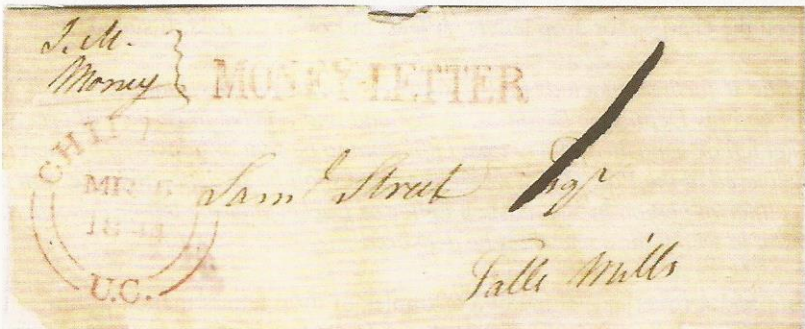 J. M.
Money
MONEY-LETTER
CHIPP
Saml Street Esqr
Falls Mills
U.C.